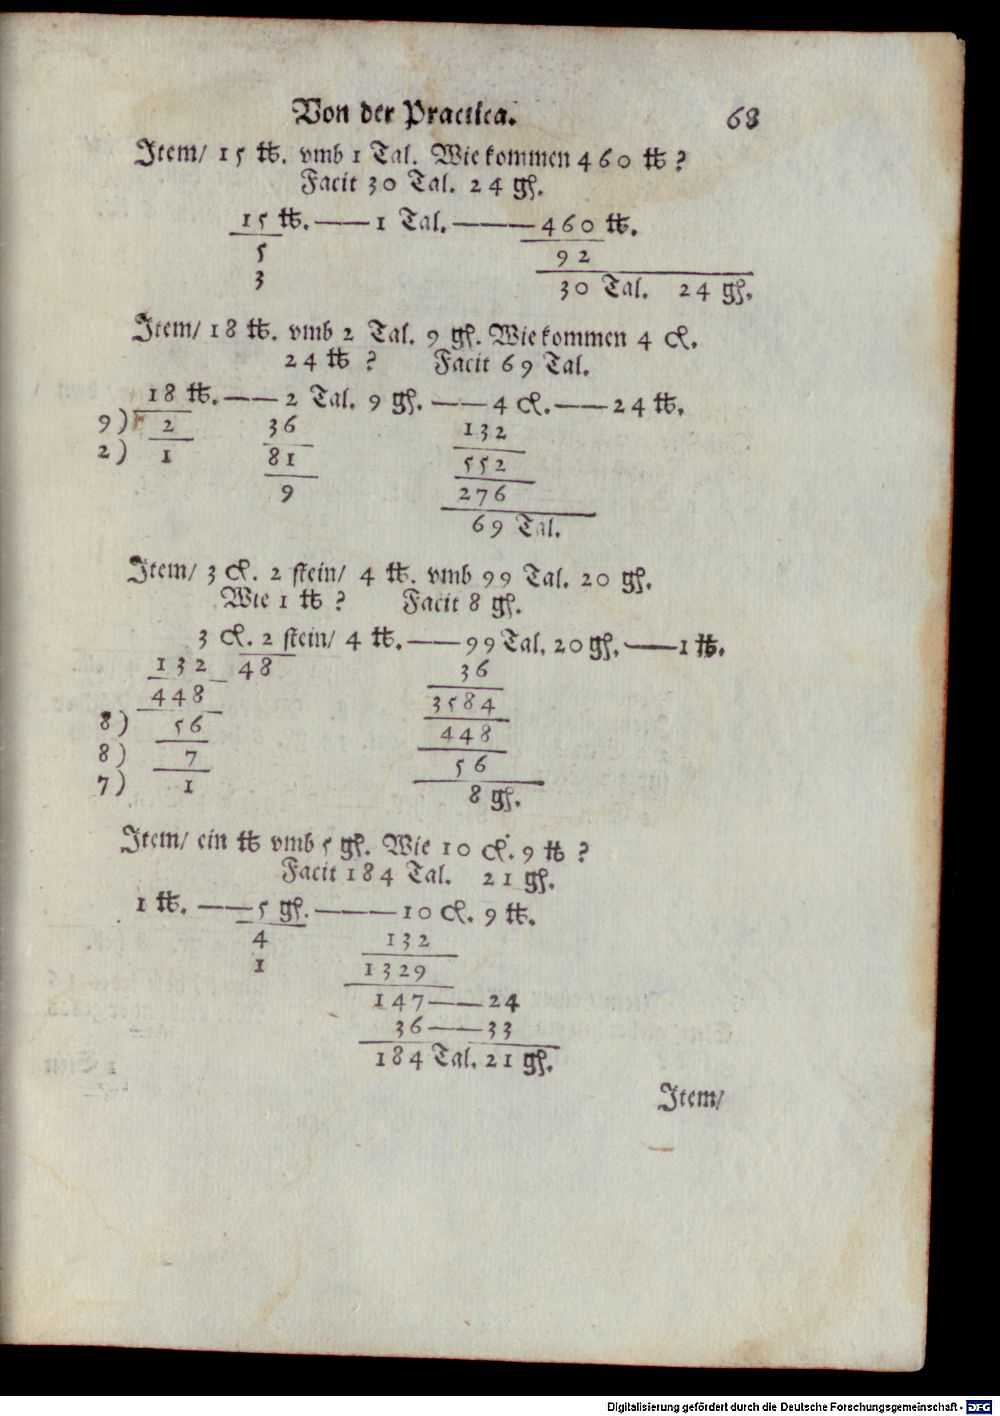 Von der Practica. 68
Item/ 15 ℔. vmb 1 Tal. Wie kommen 460 ℔ ?
Facit 30 Tal. 24 gß.
15 ℔. —— 1 Tal. ——— 460 ℔.
5 92
3 30 Tal. 24 gß.
Item/ 18 ℔. vmb 2 Tal. 9 gß. Wie kommen 4 cl.
24 ℔ ? Facit 69 Tal.
18 ℔. —— 2 Tal. 9 gß. —— 4 cl. —— 24 ℔.
9) 2 36 132
2) 1 81 552
9 276
69 Tal.
Item/ 3 cl. 2 stein/ 4 ℔. vmb 99 Tal. 20 gß.
Wie 1 ℔ ? Facit 8 gß.
3 cl. 2 stein/ 4 ℔. —— 99 Tal. 20 gß. —— 1 ℔.
132 48 36
448 3584
8) 56 448
8) 7 56
7) 1 8 gß.
Item/ ein ℔ vmb 5 gß. Wie 10 cl. 9 ℔ ?
Facit 184 Tal. 21 gß.
1 ℔. —— 5 gß. ——— 10 cl. 9 ℔.
4 132
1 1329
147 —— 24
36 —— 33
184 Tal. 21 gß.
Item/
Digitalisierung gefördert durch die Deutsche Forschungsgemeinschaft - DFG